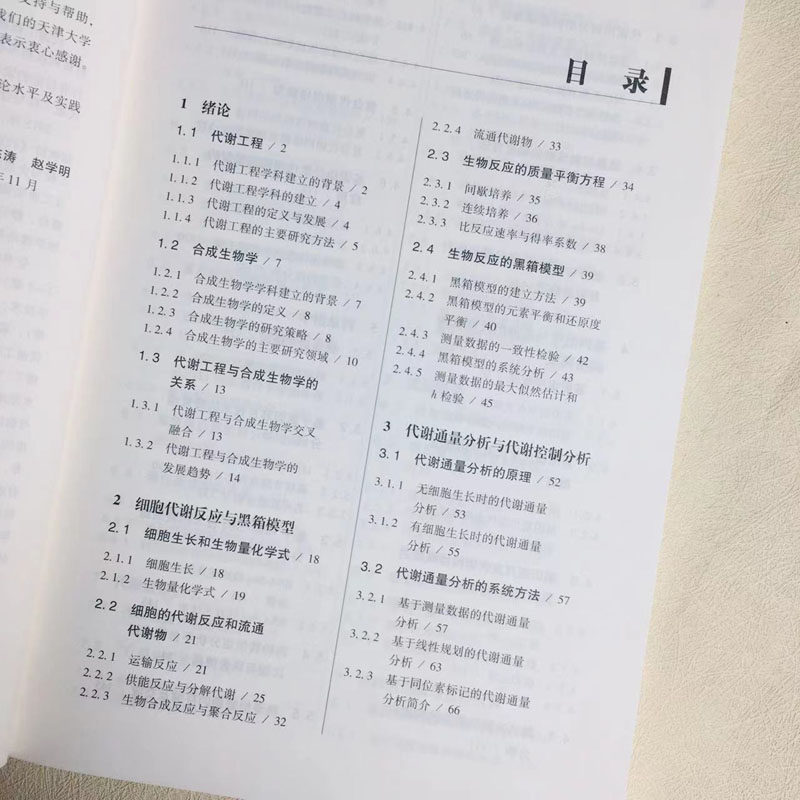 支持与帮助,
我们的天津大学
表示衷心感谢。
论水平及实践
陈涛 赵学明
年11月
目 录
1 绪论
1.1 代谢工程 / 2
1.1.1 代谢工程学科建立的背景 / 2
1.1.2 代谢工程学科的建立 / 4
1.1.3 代谢工程的定义与发展 / 4
1.1.4 代谢工程的主要研究方法 / 5
1.2 合成生物学 / 7
1.2.1 合成生物学学科建立的背景 / 7
1.2.2 合成生物学的定义 / 8
1.2.3 合成生物学的研究策略 / 8
1.2.4 合成生物学的主要研究领域 / 10
1.3 代谢工程与合成生物学的
关系 / 13
1.3.1 代谢工程与合成生物学交叉
融合 / 13
1.3.2 代谢工程与合成生物学的
发展趋势 / 14
2 细胞代谢反应与黑箱模型
2.1 细胞生长和生物量化学式 / 18
2.1.1 细胞生长 / 18
2.1.2 生物量化学式 / 19
2.2 细胞的代谢反应和流通
代谢物 / 21
2.2.1 运输反应 / 21
2.2.2 供能反应与分解代谢 / 25
2.2.3 生物合成反应与聚合反应 / 32
2.2.4 流通代谢物 / 33
2.3 生物反应的质量平衡方程 / 34
2.3.1 间歇培养 / 35
2.3.2 连续培养 / 36
2.3.3 比反应速率与得率系数 / 38
2.4 生物反应的黑箱模型 / 39
2.4.1 黑箱模型的建立方法 / 39
2.4.2 黑箱模型的元素平衡和还原度
平衡 / 40
2.4.3 测量数据的一致性检验 / 42
2.4.4 黑箱模型的系统分析 / 43
2.4.5 测量数据的最大似然估计和
h 检验 / 45
3 代谢通量分析与代谢控制分析
3.1 代谢通量分析的原理 / 52
3.1.1 无细胞生长时的代谢通量
分析 / 53
3.1.2 有细胞生长时的代谢通量
分析 / 55
3.2 代谢通量分析的系统方法 / 57
3.2.1 基于测量数据的代谢通量
分析 / 57
3.2.2 基于线性规划的代谢通量
分析 / 63
3.2.3 基于同位素标记的代谢通量
分析简介 / 66